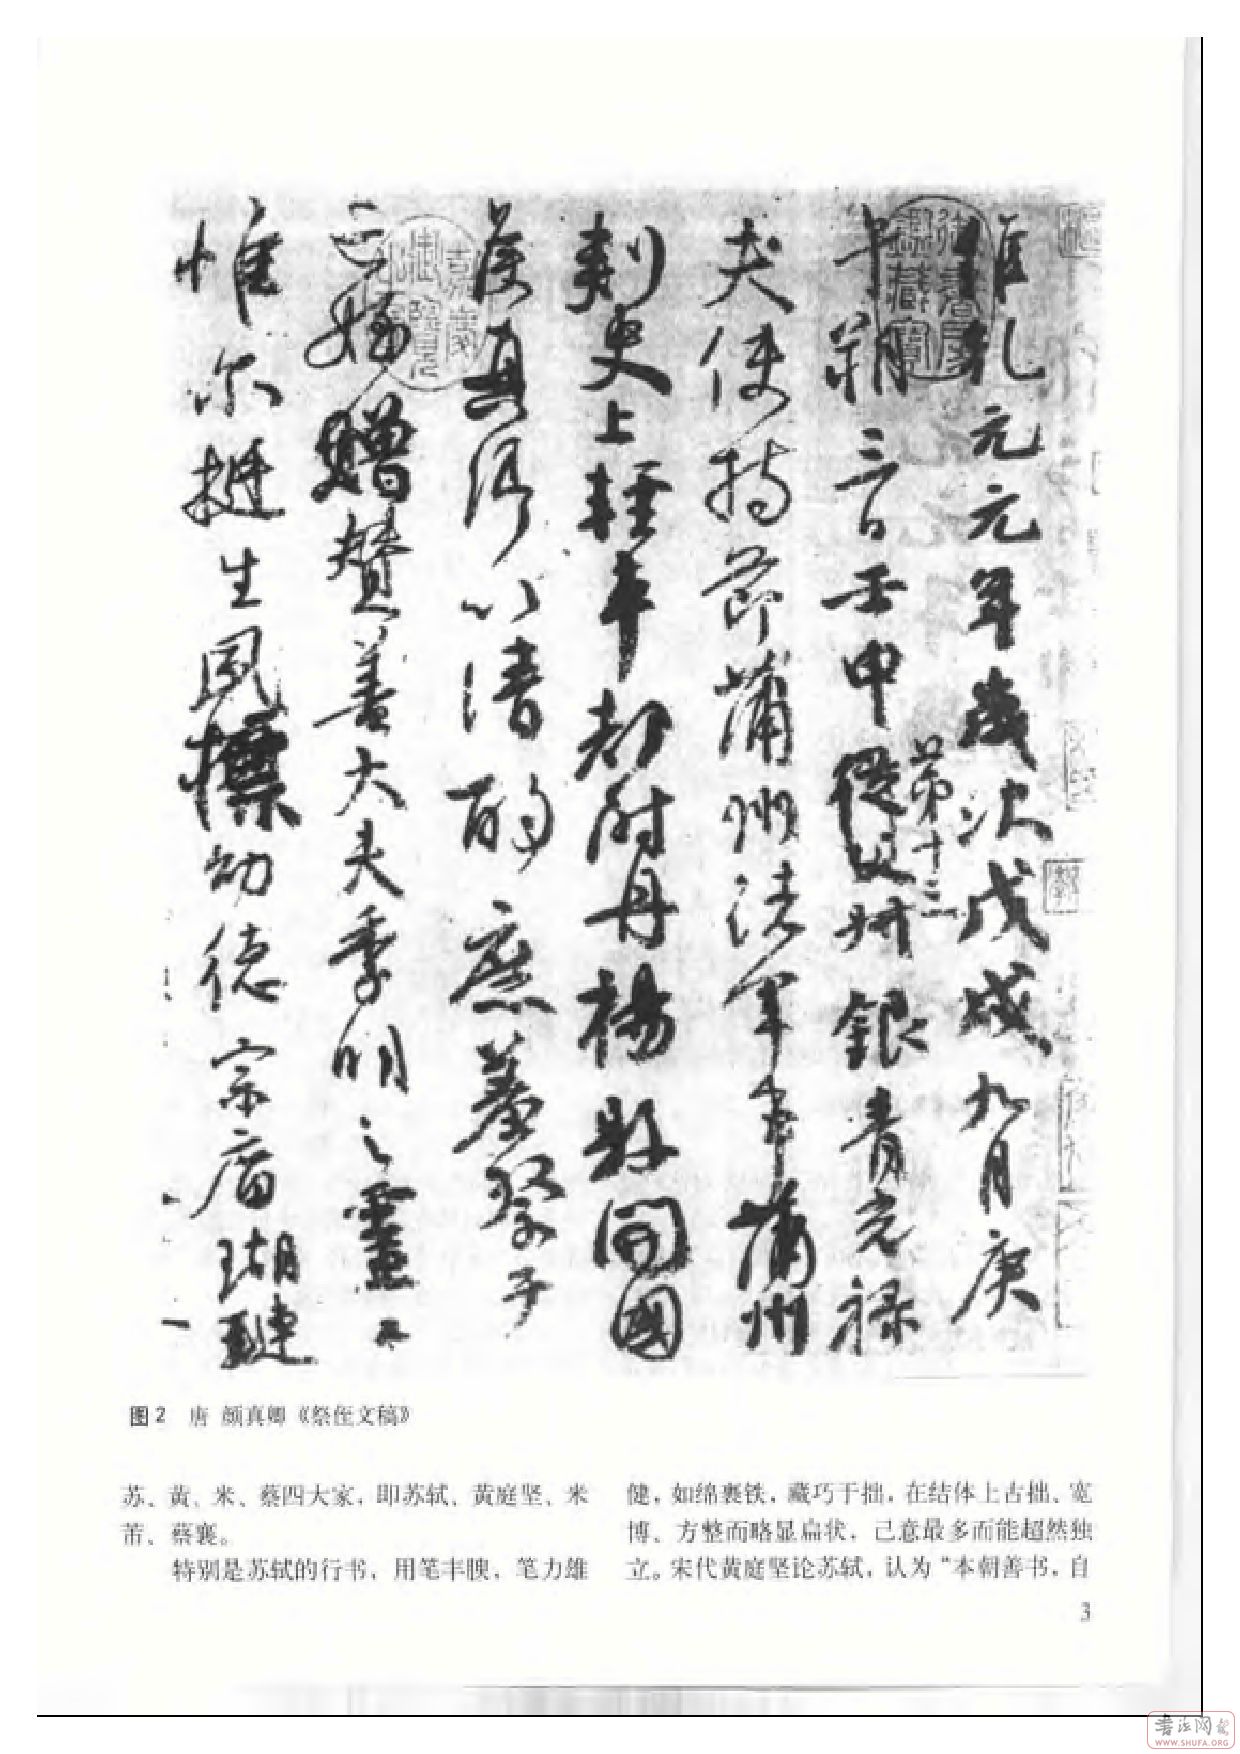 惟乾元元年歲次戊戌九月庚
午朔三日壬申第十三從父叔銀青光祿
夫使持節蒲州諸軍事蒲州
刺史上輕車都尉丹楊縣開國
侯真卿以清酌庶羞祭于
亡姪贈贊善大夫季明之靈曰
惟尔挺生夙標幼德宗廟瑚璉
图2 唐 颜真卿《祭侄文稿》
苏、黄、米、蔡四大家，即苏轼、黄庭坚、米
芾、蔡襄。
特别是苏轼的行书，用笔丰腴，笔力雄
健，如绵裹铁，藏巧于拙，在结体上古拙、宽
博、方整而略显扁状，己意最多而能超然独
立。宋代黄庭坚论苏轼，认为“本朝善书，自
3
书法网
WWW.SHUFA.ORG